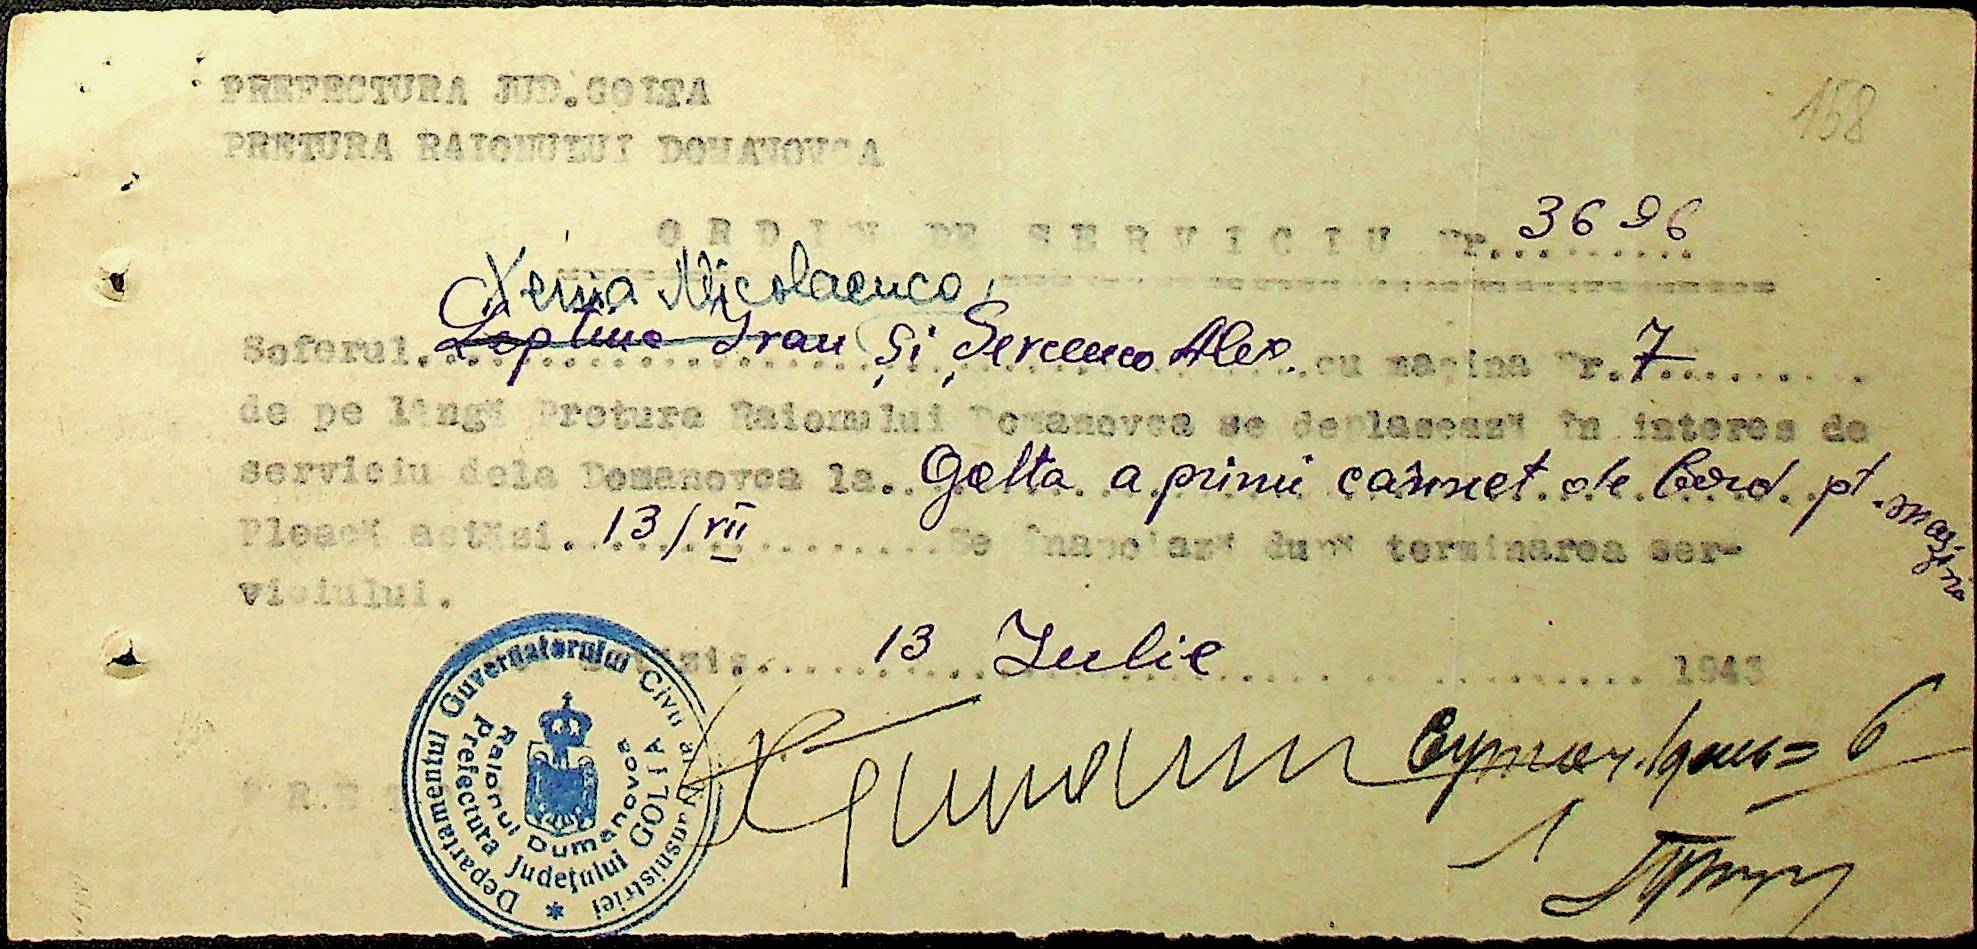 PREFECTURA JUD.GOLTA
158
PRETURA RAIONULUI DOMANOVCA
ORDIN DE SERVICIU Nr. 3696
Xenia Nicolaenco,
Soferul. Ivan și Sercenco Alex. cu mașina Nr. 7
de pe lîngă Pretura Raionului Domanovca se deplasează în interes de
serviciu dela Domanovca la. Golta a primi carnet de bord pt. mașină
Pleacă astăzi. 13/VII Se înapoiază după terminarea ser-
viciului.
Astăzi. 13 Iulie 1943
PRET
Departamentul Guvernatorului Civil al Transnistriei
Prefectura Județului GOLTA
Raionul Dumanovca